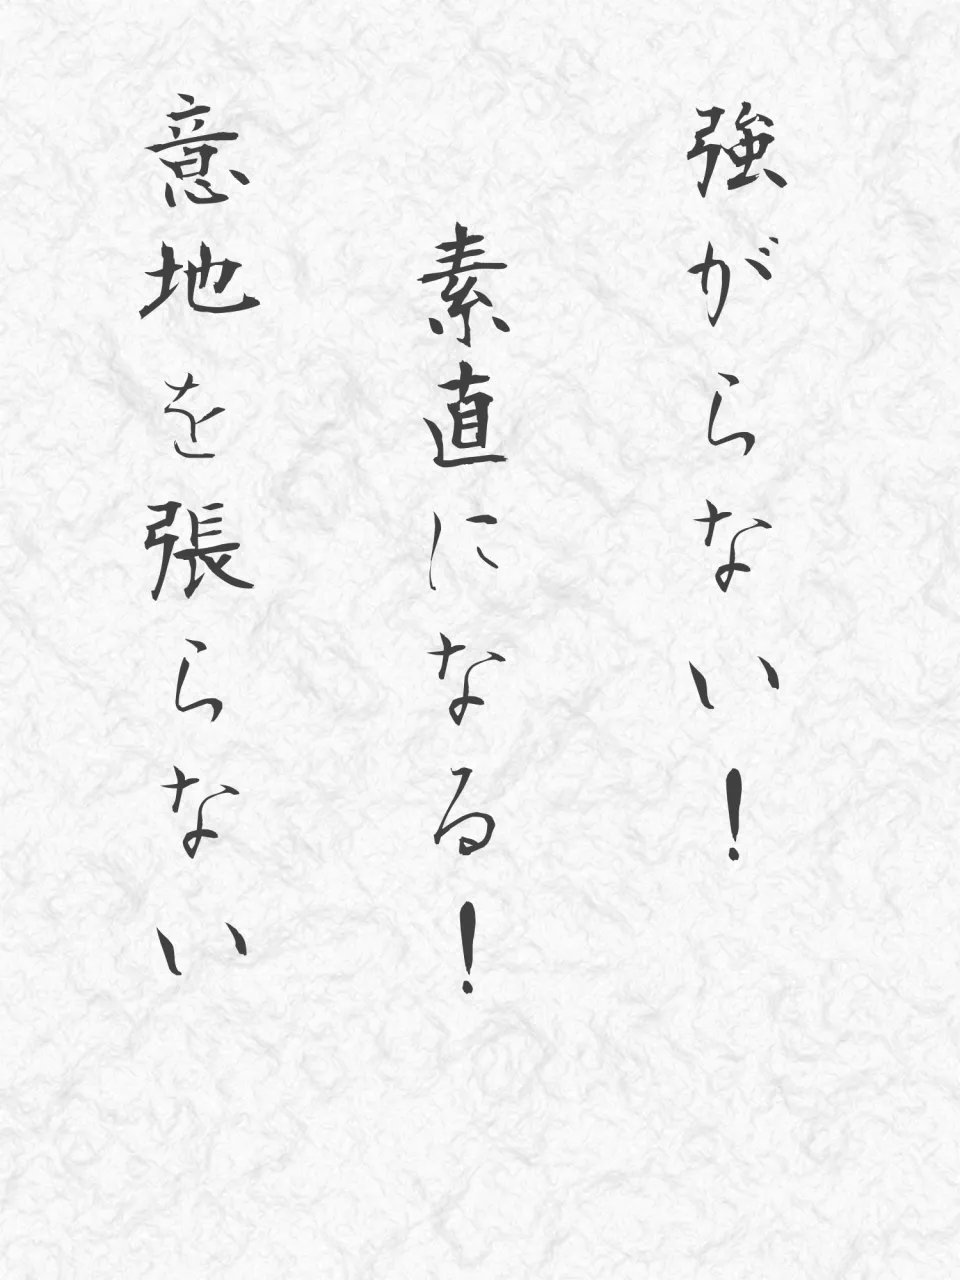 強がらない！
素直になる！
意地を張らない